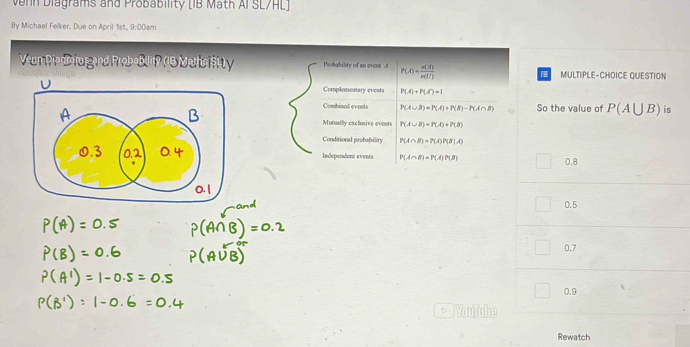 Venn Diagrams and Probability [IB Math AI SL/HL]
By Michael Felker, Due on April 1st, 9:00am
Venn Diagrams and Probability (IB Maths SL)
U
A
B
0.3
0.2
0.4
0.1
P(A) = 0.5
P(B) = 0.6
P(A') = 1-0.5 = 0.5
P(B') = 1-0.6 = 0.4
and
P(A∩B) = 0.2
or
P(A∪B)
Probability of an event A P(A) = n(A)/n(U)
Complementary events P(A) + P(A') = 1
Combined events P(A ∪ B) = P(A) + P(B) − P(A ∩ B)
Mutually exclusive events P(A ∪ B) = P(A) + P(B)
Conditional probability P(A ∩ B) = P(A) P(B | A)
Independent events P(A ∩ B) = P(A) P(B)
YouTube
MULTIPLE-CHOICE QUESTION
So the value of P(A ⋃ B) is
0.8
0.5
0.7
0.9
Rewatch